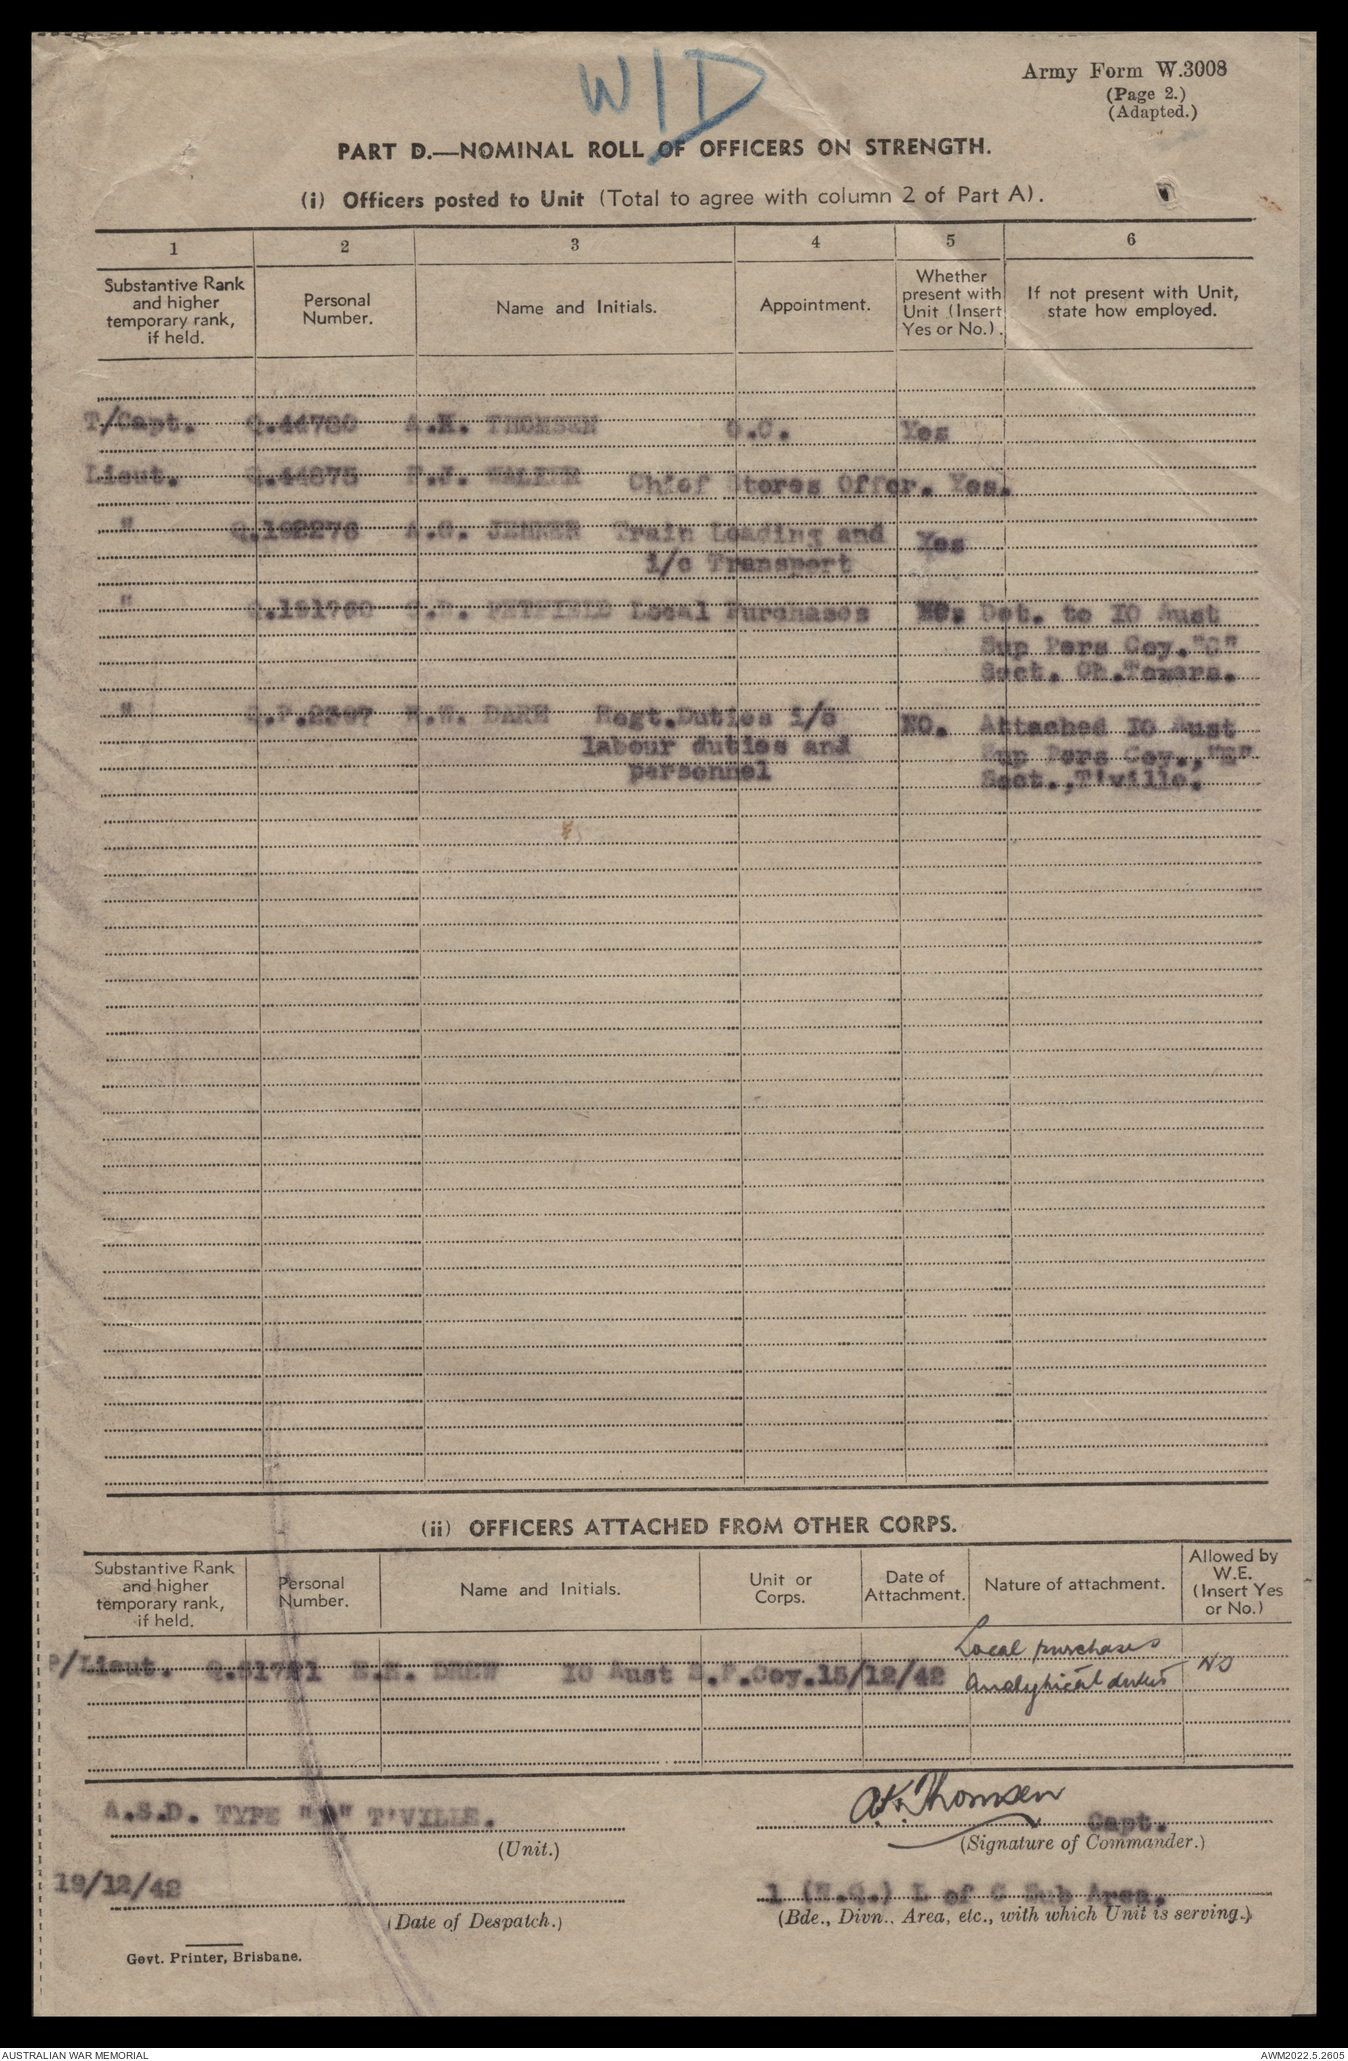 W/D
Army Form W.3008
(Page 2.)
(Adapted.)
PART D.—NOMINAL ROLL OF OFFICERS ON STRENGTH.
(i) Officers posted to Unit (Total to agree with column 2 of Part A).
1 2 3 4 5 6
Substantive Rank and higher temporary rank, if held. Personal Number. Name and Initials. Appointment. Whether present with Unit (Insert Yes or No.). If not present with Unit, state how employed.
T/Capt. Q.44780 A.K. THOMSEN O.C. Yes
Lieut. Q.44875 F.J. WALKER Chief Stores Offcr. Yes.
" Q.192276 A.G. Train Loading and Yes
i/c Transport
" Local Purchases NO. Det. to IO Aust
Sup Pers Coy."C"
Sect. Ch.Towers.
" W. DARE Regt.Duties i/c NO. Attached IO Aust
labour duties and Sup Pers Coy.,
personnel Sect.,T'ville.
(ii) OFFICERS ATTACHED FROM OTHER CORPS.
Substantive Rank and higher temporary rank, if held. Personal Number. Name and Initials. Unit or Corps. Date of Attachment. Nature of attachment. Allowed by W.E. (Insert Yes or No.)
Local purchases
P/Lieut. DREW IO Aust S.P.Coy. 15/12/42 Analytical duties NO
A.S.D. TYPE T'VILLE.
(Unit.)
A.K. Thomsen Capt.
(Signature of Commander.)
19/12/42
(Date of Despatch.)
1 (N.Q.) L of C Sub Area.
(Bde., Divn., Area, etc., with which Unit is serving.)
Govt. Printer, Brisbane.
AUSTRALIAN WAR MEMORIAL
AWM2022.5.2605